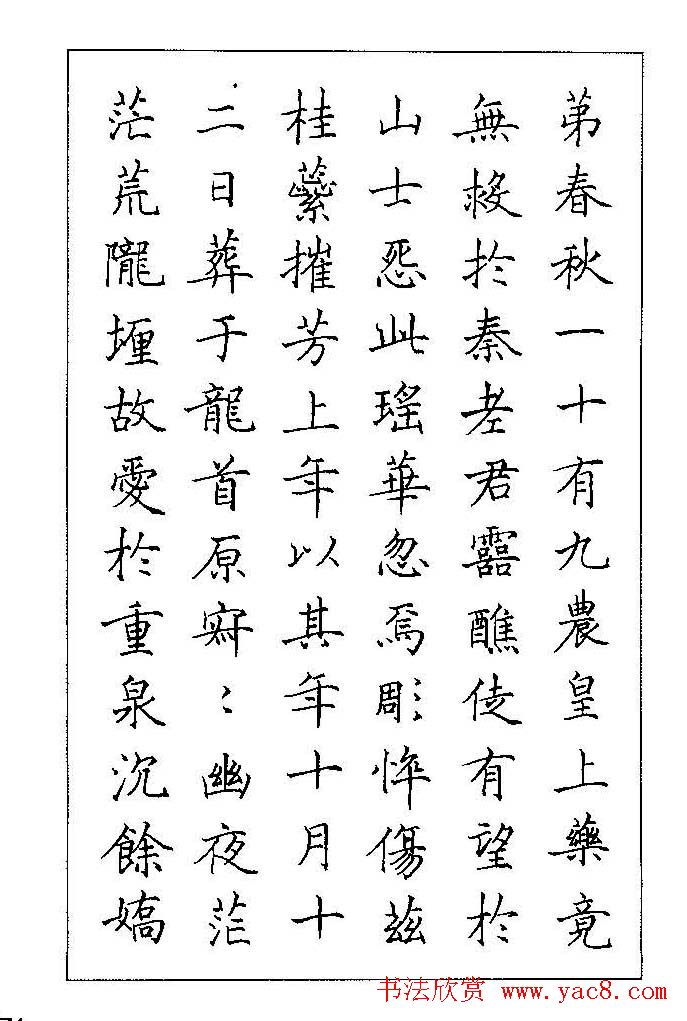 苐春秋一十有九農皇上藥竟
無救於秦老君靈醮徒有望於
山士惌此瑤華忽焉彫悴傷茲
桂蘂摧芳上年以其年十月十
二日葬于龍首原窮〻幽夜茫
茫荒隴堙故愛於重泉沉餘嬌
书法欣赏 www.yac8.com